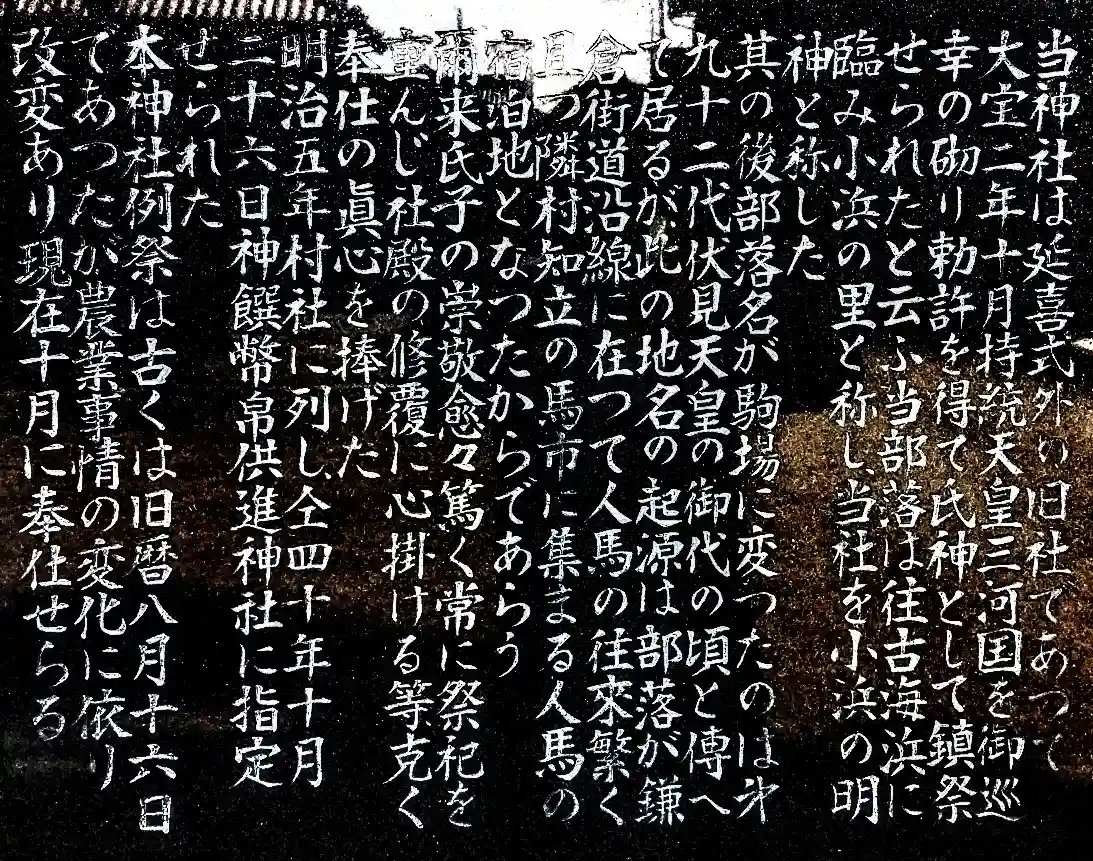 当神社は延喜式外の旧社であつて
大宝二年十月持統天皇三河国を御巡
幸の砌り勅許を得て氏神として鎮祭
せられたと云ふ当部落は往古海浜に
臨み小浜の里と称し当社を小浜の明
神と称した
其の後部落名が駒場に変つたのは才
九十二代伏見天皇の御代の頃と傳へ
て居るが此の地名の起源は部落が鎌
倉街道沿線に在つて人馬の往來繁く
且つ隣村知立の馬市に集まる人馬の
宿泊地となつたからであらう
爾来氏子の崇敬愈々篤く常に祭祀を
重んじ社殿の修覆に心掛ける等克く
奉仕の眞心を捧げた
明治五年村社に列し仝四十年十月
二十六日神饌幣帛供進神社に指定
せられた
本神社例祭は古くは旧暦八月十六日
てあつたが農業事情の変化に依り
改変あり現在十月に奉仕せらる